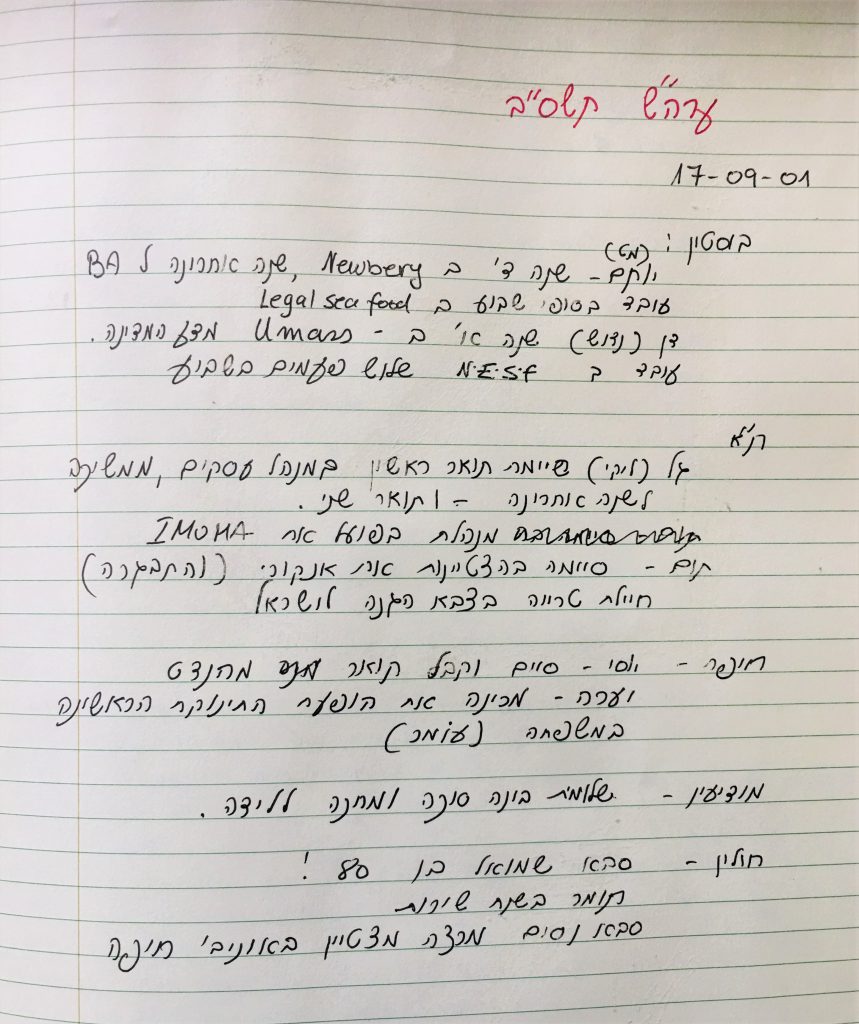 ערה״ש תשס״ב
17-09-01
בוסטון:
(מט)
יותם - שנה ד' ב Newbery, שנה אחרונה ל BA
עובד בסופי שבוע ב Legal sea food
דן (נדוש) שנה א' ב - Umass מדע המדינה.
עובד ב N.E.S.F שלוש פעמים בשבוע
ת״א
גל (ליקי) סיימה תואר ראשון במנהל עסקים, ממשיכה
לשנה אחרונה - ותואר שני.
מנהלת בפועל את IMOHA
תום - סיימה בהצטיינות את אנקורי (והתבגרה)
חיילת טרייה בצבא הגנה לישראל
חיפה - יוסי - סיים וקבל תואר מהנדס
ויערה - מכינה את הופעת התינוקת הראשונה
במשפחה (עומר)
מודיעין - שלומית בינה סוכה ומחכה ללידה.
חולון - סבא שמואל בן 80!
תומר בשנת שירות
סבא נסים מרצה מצטיין באוניב' חיפה